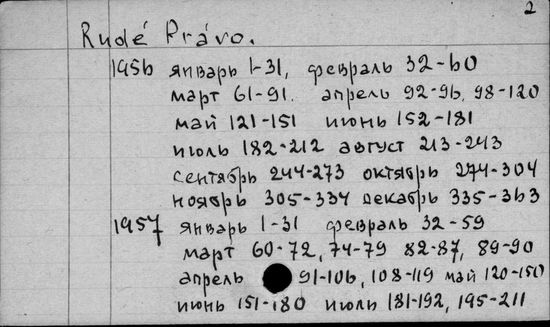 2
Rudé Právo.
1956 январь 1-31, февраль 32-60
март 61-91. апрель 92-96, 98-120
май 121-151 июнь 152-181
июль 182-212 август 213-243
сентябрь 244-273 октябрь 274-304
ноябрь 305-334 декабрь 335-363
1957 январь 1-31 февраль 32-59
март 60-72, 74-79 82-87, 89-90
апрель 91-106, 108-119 май 120-150
июнь 151-180 июль 181-192, 195-211